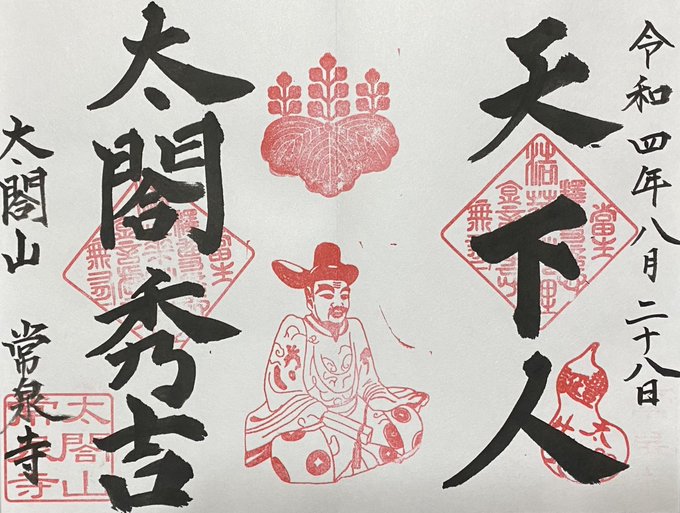 令和四年八月二十八日
天下人
太閤秀吉
太閤山 常泉寺
太閤山
常泉寺